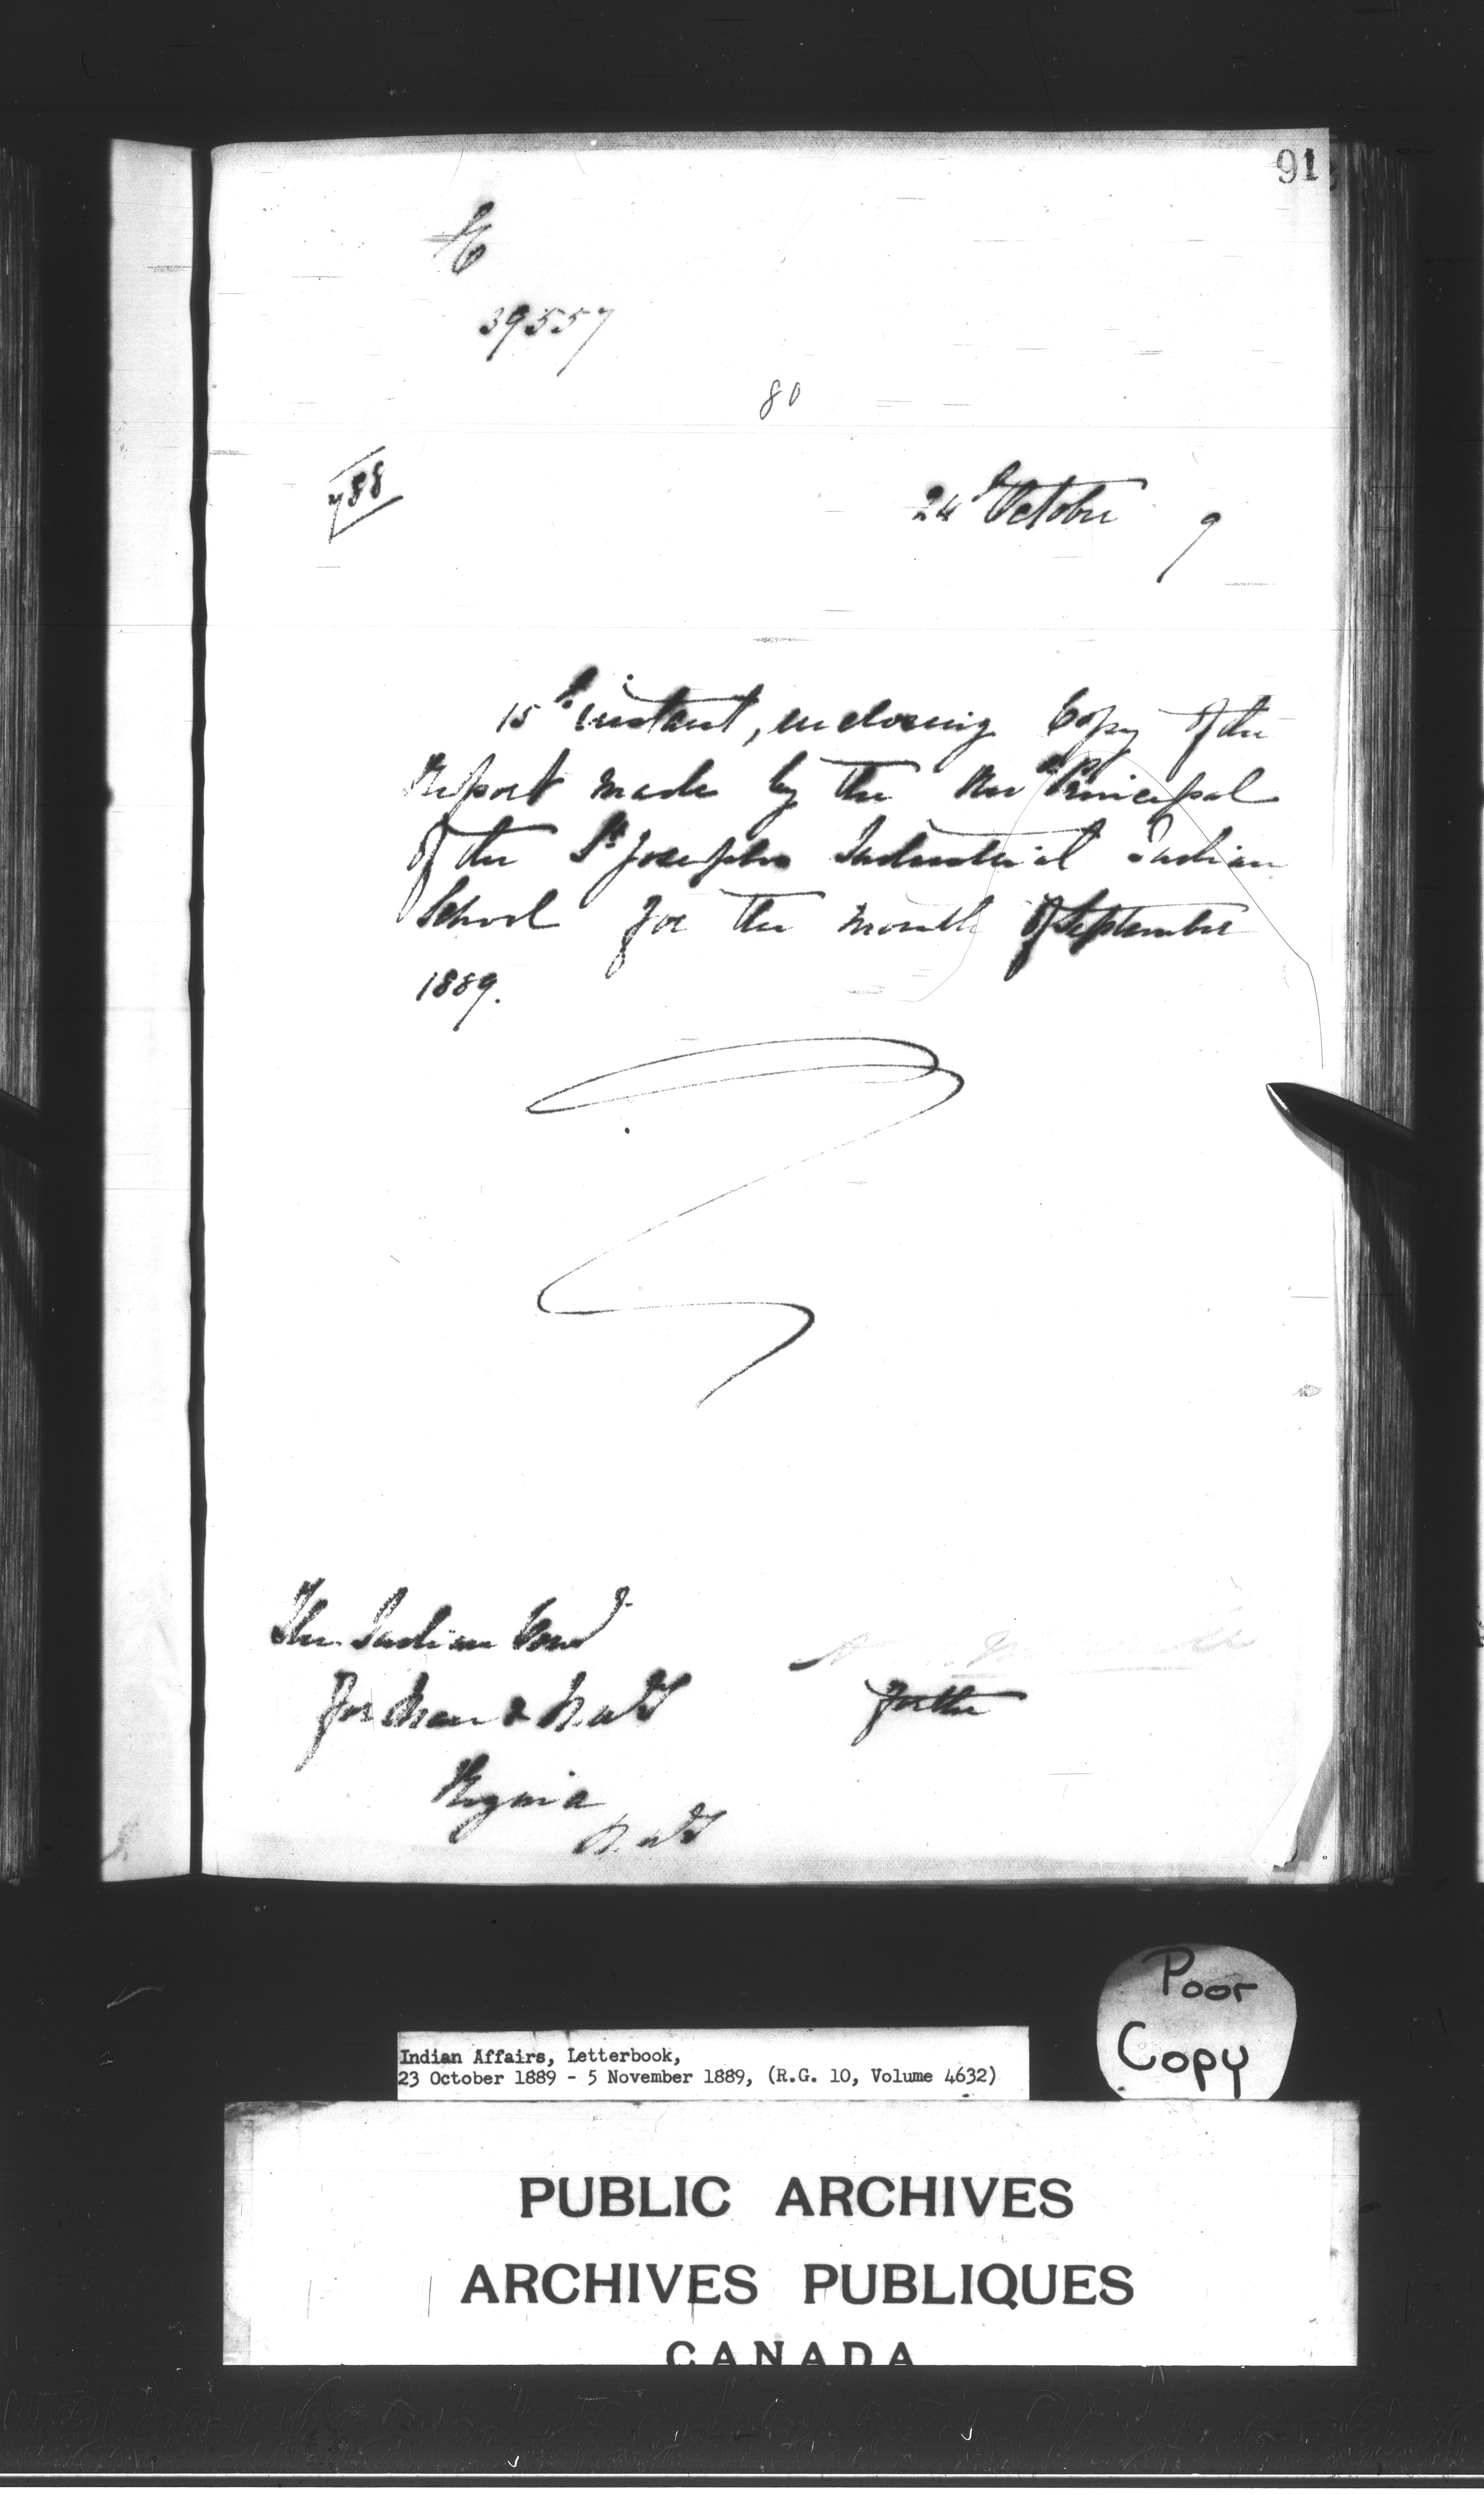 91
39557
80
788
24th October 9
15th instant, enclosing Copy of the
Report made by the Revd Principal
of the St Josephs Industrial Indian
School for the month of September
1889.
The Indian Comr
for Man & N.W.T
for the
Regina
N.W.T
Poor
Copy
Indian Affairs, Letterbook,
23 October 1889 - 5 November 1889, (R.G. 10, Volume 4632)
PUBLIC ARCHIVES
ARCHIVES PUBLIQUES
CANADA